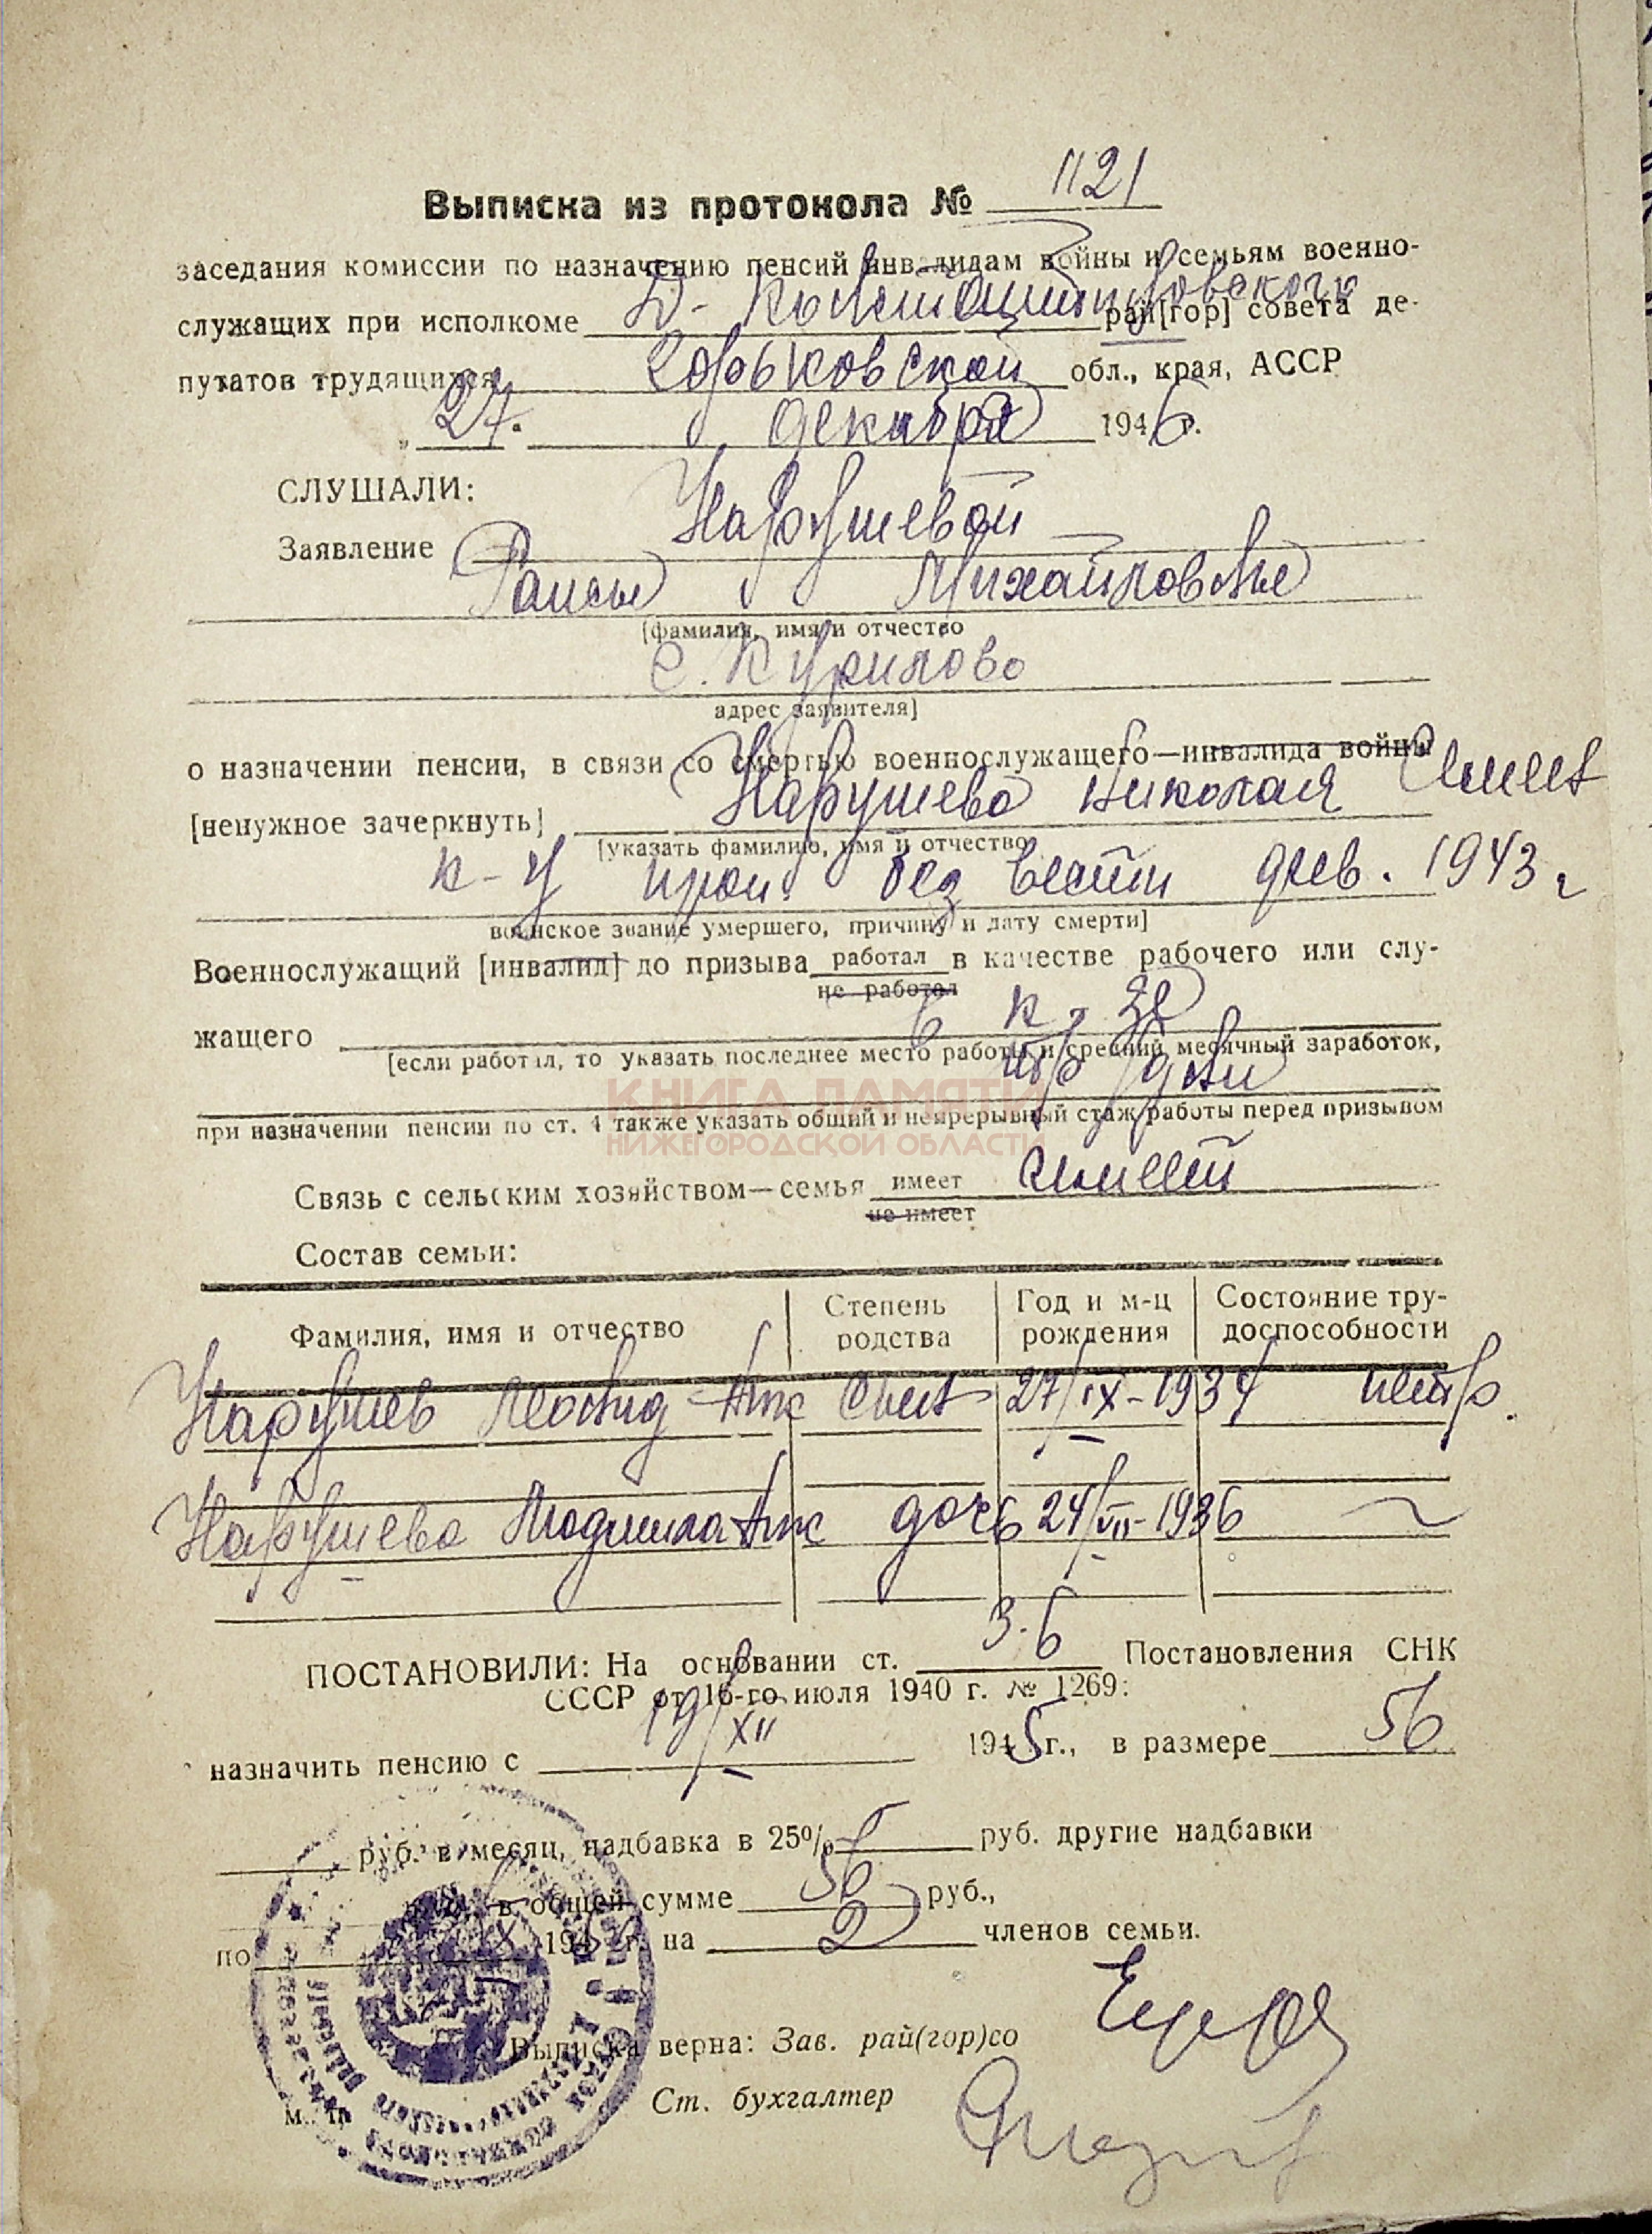 Выписка из протокола № 1121
заседания комиссии по назначению пенсий инвалидам войны и семьям военно-
служащих при исполкоме Д-Константиновского рай[гор] совета де-
путатов трудящихся Горьковской обл., края, АССР
„27. декабря 1946 г.
СЛУШАЛИ:
Заявление Нарушевой
Раисы Михайловны
[фамилия, имя и отчество
с. Курилово
адрес заявителя]
о назначении пенсии, в связи со смертью военнослужащего—инвалида войны
[ненужное зачеркнуть] Нарушева Николая
[указать фамилию, имя и отчество
к-ц проп. без вести дек. 1943 г
воинское звание умершего, причину и дату смерти]
Военнослужащий [инвалид] до призыва работал в качестве рабочего или слу-
не работал
жащего в к-зе
[если работал, то указать последнее место работы и средний месячный заработок,
тр/дни
КНИГА ПАМЯТИ
при назначении пенсии по ст. 4 также указать общий и непрерывный стаж работы перед призывом
НИЖЕГОРОДСКОЙ ОБЛАСТИ
Связь с сельским хозяйством—семья имеет имеет
не имеет
Состав семьи:
Фамилия, имя и отчество Степень родства Год и м-ц рождения Состояние тру-доспособности
Нарушев Леонид Ник сын 27/IX-1934 нетр.
Нарушева Людмила Ник дочь 24/VII-1936 〃
ПОСТАНОВИЛИ: На основании ст. 3-б Постановления СНК
СССР от 16-го июля 1940 г. № 1269:
назначить пенсию с 19/XII 1945 г., в размере 56
руб. в месяц, надбавка в 25% — руб. другие надбавки
руб., в общей сумме 56 руб.,
по IX 195 г. на 2 членов семьи.
Выписка верна: Зав. рай(гор)со
Ст. бухгалтер
м. п.